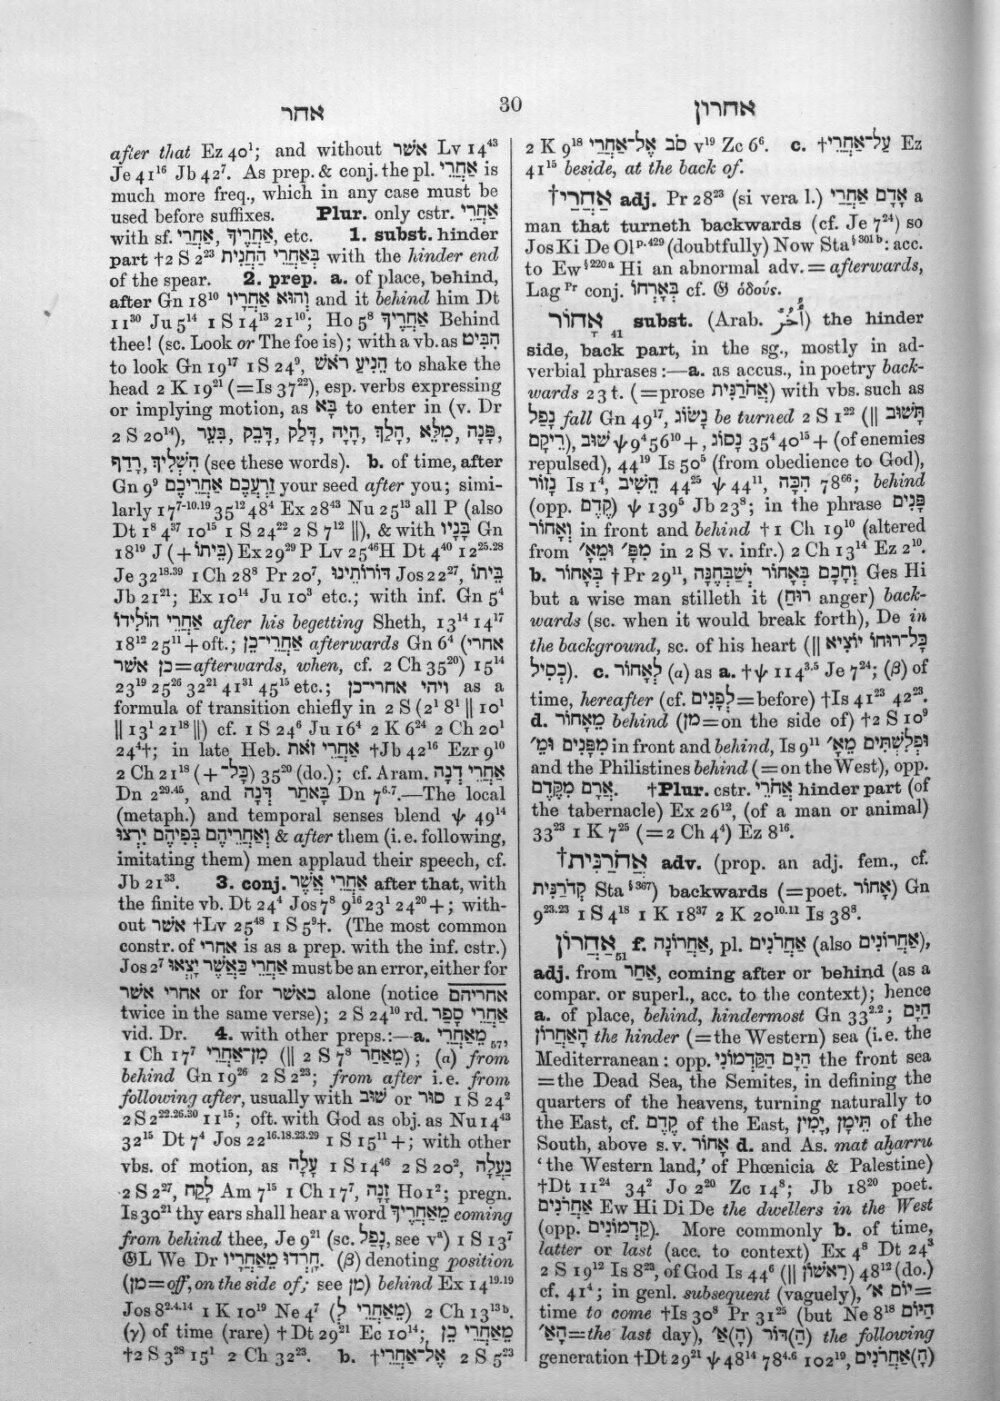 אחר
30
אחרון
after that Ez 40¹; and without אשר Lv 14⁴³
Je 41¹⁶ Jb 42⁷. As prep. & conj. the pl. אַחֲרֵי is
much more freq., which in any case must be
used before suffixes. Plur. only cstr. אַחֲרֵי
with sf. אַחֲרֶיךָ, אַחֲרַי, etc. 1. subst. hinder
part †2 S 2²³ בְּאַחֲרֵי הַחֲנִית with the hinder end
of the spear. 2. prep. a. of place, behind,
after Gn 18¹⁰ וְהוּא אַחֲרָיו and it behind him Dt
11³⁰ Ju 5¹⁴ 1 S 14¹³ 21¹⁰; Ho 5⁸ אַחֲרֶיךָ Behind
thee! (sc. Look or The foe is); with a vb. as הִבִּיט
to look Gn 19¹⁷ 1 S 24⁹, הֵנִיעַ רֹאשׁ to shake the
head 2 K 19²¹ (=Is 37²²), esp. verbs expressing
or implying motion, as בָּא to enter in (v. Dr
2 S 20¹⁴), פָּנָה, מִלֵּא, הָלַךְ, הָיָה, דָּלַק, דָּבֵק, בִּעֵר,
הִשְׁלִיךְ, רָדַף (see these words). b. of time, after
Gn 9⁹ זַרְעֲכֶם אַחֲרֵיכֶם your seed after you; simi-
larly 17⁷⁻¹⁰·¹⁹ 35¹² 48⁴ Ex 28⁴³ Nu 25¹³ all P (also
Dt 1⁸ 4³⁷ 10¹⁵ 1 S 24²² 2 S 7¹² ||), & with בָּנָיו Gn
18¹⁹ J (+בֵּיתוֹ) Ex 29²⁹ P Lv 25⁴⁶ H Dt 4⁴⁰ 12²⁵·²⁸
Je 32¹⁸·³⁹ 1 Ch 28⁸ Pr 20⁷, דּוֹרוֹתֵינוּ Jos 22²⁷, בֵּיתוֹ
Jb 21²¹; Ex 10¹⁴ Ju 10³ etc.; with inf. Gn 5⁴
אַחֲרֵי הוֹלִידוֹ after his begetting Sheth, 13¹⁴ 14¹⁷
18¹² 25¹¹ + oft.; אַחֲרֵי־כֵן afterwards Gn 6⁴ (אחרי
כן אשר=afterwards, when, cf. 2 Ch 35²⁰) 15¹⁴
23¹⁹ 25²⁶ 32²¹ 41³¹ 45¹⁵ etc.; ויהי אחרי־כן as a
formula of transition chiefly in 2 S (2¹ 8¹ || 10¹
|| 13¹ 21¹⁸ ||) cf. 1 S 24⁶ Ju 16⁴ 2 K 6²⁴ 2 Ch 20¹
24⁴†; in late Heb. אַחֲרֵי זֹאת †Jb 42¹⁶ Ezr 9¹⁰
2 Ch 21¹⁸ (+כָּל־) 35²⁰ (do.); cf. Aram. אַחֲרֵי דְנָה
Dn 2²⁹·⁴⁵, and בָּאתַר דְּנָה Dn 7⁶·⁷.—The local
(metaph.) and temporal senses blend ψ 49¹⁴
וְאַחֲרֵיהֶם בְּפִיהֶם יִרְצוּ & after them (i.e. following,
imitating them) men applaud their speech, cf.
Jb 21³³. 3. conj. אַחֲרֵי אֲשֶׁר after that, with
the finite vb. Dt 24⁴ Jos 7⁸ 9¹⁶ 23¹ 24²⁰ +; with-
out אשר †Lv 25⁴⁸ 1 S 5⁹†. (The most common
constr. of אחרי is as a prep. with the inf. cstr.)
Jos 2⁷ אַחֲרֵי כַּאֲשֶׁר יָצְאוּ must be an error, either for
אחרי אשר or for כאשר alone (notice אחריהם
twice in the same verse); 2 S 24¹⁰ rd. אַחֲרֵי סָפַר
vid. Dr. 4. with other preps.:—a. מֵאַחֲרֵי ₅₇,
1 Ch 17⁷ מִן־אַחֲרֵי (|| 2 S 7⁸ מֵאַחַר); (α) from
behind Gn 19²⁶ 2 S 2²³; from after i.e. from
following after, usually with שׁוּב or סוּר 1 S 24²
2 S 2²²·²⁶·³⁰ 11¹⁵; oft. with God as obj. as Nu 14⁴³
32¹⁵ Dt 7⁴ Jos 22¹⁶·¹⁸·²³·²⁹ 1 S 15¹¹ +; with other
vbs. of motion, as עָלָה 1 S 14⁴⁶ 2 S 20², נַעֲלָה
2 S 2²⁷, לָקַח Am 7¹⁵ 1 Ch 17⁷, זָנָה Ho 1²; pregn.
Is 30²¹ thy ears shall hear a word מֵאַחֲרֶיךָ coming
from behind thee, Je 9²¹ (sc. נָפַל, see vᵃ) 1 S 13⁷
𝔊L We Dr חָרְדוּ מֵאַחֲרָיו. (β) denoting position
(מן=off, on the side of; see מִן) behind Ex 14¹⁹·¹⁹
Jos 8²·⁴·¹⁴ 1 K 10¹⁹ Ne 4⁷ (מֵאַחֲרֵי לְ) 2 Ch 13¹³ᵇ.
(γ) of time (rare) †Dt 29²¹ Ec 10¹⁴; מֵאַחֲרֵי כֵן
†2 S 3²⁸ 15¹ 2 Ch 32²³. b. †אֶל־אַחֲרֵי 2 S 5²³
2 K 9¹⁸ סֹב אֶל־אַחֲרַי v¹⁹ Zc 6⁶. c. †עַל־אַחֲרֵי Ez
41¹⁵ beside, at the back of.
†אֲחֹרַי adj. Pr 28²³ (si vera l.) אָדָם אַחֲרַי a
man that turneth backwards (cf. Je 7²⁴) so
Jos Ki De Ol ᵖ·⁴²⁹ (doubtfully) Now Sta §³⁰¹ᵇ: acc.
to Ew §²²⁰ᵃ Hi an abnormal adv. = afterwards,
Lag ᴾʳ conj. בְּאָרְחוֹ cf. 𝔊 ὁδούς.
אָחוֹר ₄₁ subst. (Arab. أُخُرٌ) the hinder
side, back part, in the sg., mostly in ad-
verbial phrases:—a. as accus., in poetry back-
wards 23 t. (=prose אֲחֹרַנִּית) with vbs. such as
נָפַל fall Gn 49¹⁷, נָשׂוֹג be turned 2 S 1²² (|| תָּשׁוּב
רֵיקָם), שׁוּב ψ 9⁴ 56¹⁰ +, נָסוֹג 35⁴ 40¹⁵ + (of enemies
repulsed), 44¹⁹ Is 50⁵ (from obedience to God),
נָזוֹר Is 1⁴, הֵשִׁיב 44²⁵ ψ 44¹¹, הִכָּה 78⁶⁶; behind
(opp. קֶדֶם) ψ 139⁵ Jb 23⁸; in the phrase פָּנִים
וְאָחוֹר in front and behind †1 Ch 19¹⁰ (altered
from מִפּ׳ וּמֵא׳ in 2 S v. infr.) 2 Ch 13¹⁴ Ez 2¹⁰.
b. בְּאָחוֹר †Pr 29¹¹ וְחָכָם בְּאָחוֹר יְשַׁבְּחֶנָּה, Ges Hi
but a wise man stilleth it (רוּחַ anger) back-
wards (sc. when it would break forth), De in
the background, sc. of his heart (|| כָּל־רוּחוֹ יוֹצִיא
כְּסִיל). c. לְאָחוֹר (α) as a. †ψ 114³·⁵ Je 7²⁴; (β) of
time, hereafter (cf. לְפָנִים=before) †Is 41²³ 42²³.
d. מֵאָחוֹר behind (מן=on the side of) †2 S 10⁹
מִפָּנִים וּמֵ׳ in front and behind, Is 9¹¹ וּפְלִשְׁתִּים מֵא׳
and the Philistines behind (=on the West), opp.
אֲרָם מִקֶּדֶם. †Plur. cstr. אֲחֹרֵי hinder part (of
the tabernacle) Ex 26¹², (of a man or animal)
33²³ 1 K 7²⁵ (=2 Ch 4⁴) Ez 8¹⁶.
†אֲחֹרַנִּית adv. (prop. an adj. fem., cf.
קְדֹרַנִּית Sta §³⁶⁷) backwards (=poet. אָחוֹר) Gn
9²³·²³ 1 S 4¹⁸ 1 K 18³⁷ 2 K 20¹⁰·¹¹ Is 38⁸.
אַחֲרוֹן ₅₁ f. אַחֲרוֹנָה, pl. אַחֲרֹנִים (also אַחֲרוֹנִים),
adj. from אַחַר, coming after or behind (as a
compar. or superl., acc. to the context); hence
a. of place, behind, hindermost Gn 33²·²; הַיָּם
הָאַחֲרוֹן the hinder (=the Western) sea (i.e. the
Mediterranean: opp. הַיָּם הַקַּדְמוֹנִי the front sea
=the Dead Sea, the Semites, in defining the
quarters of the heavens, turning naturally to
the East, cf. קֶדֶם of the East, תֵּימָן, יָמִין of the
South, above s.v. אָחוֹר d. and As. mat aḫarru
‘the Western land,’ of Phœnicia & Palestine)
†Dt 11²⁴ 34² Jo 2²⁰ Zc 14⁸; Jb 18²⁰ poet.
אַחֲרֹנִים Ew Hi Di De the dwellers in the West
(opp. קַדְמוֹנִים). More commonly b. of time,
latter or last (acc. to context) Ex 4⁸ Dt 24³
2 S 19¹² Is 8²³, of God Is 44⁶ (|| רִאשׁוֹן) 48¹² (do.)
cf. 41⁴; in genl. subsequent (vaguely), יוֹם א׳=
time to come †Is 30⁸ Pr 31²⁵ (but Ne 8¹⁸ הַיּוֹם
הָא׳=the last day), (הָ)א׳ (הַ)דּוֹר the following
generation †Dt 29²¹ ψ 48¹⁴ 78⁴·⁶ 102¹⁹, (הָ)אַחֲרֹנִים